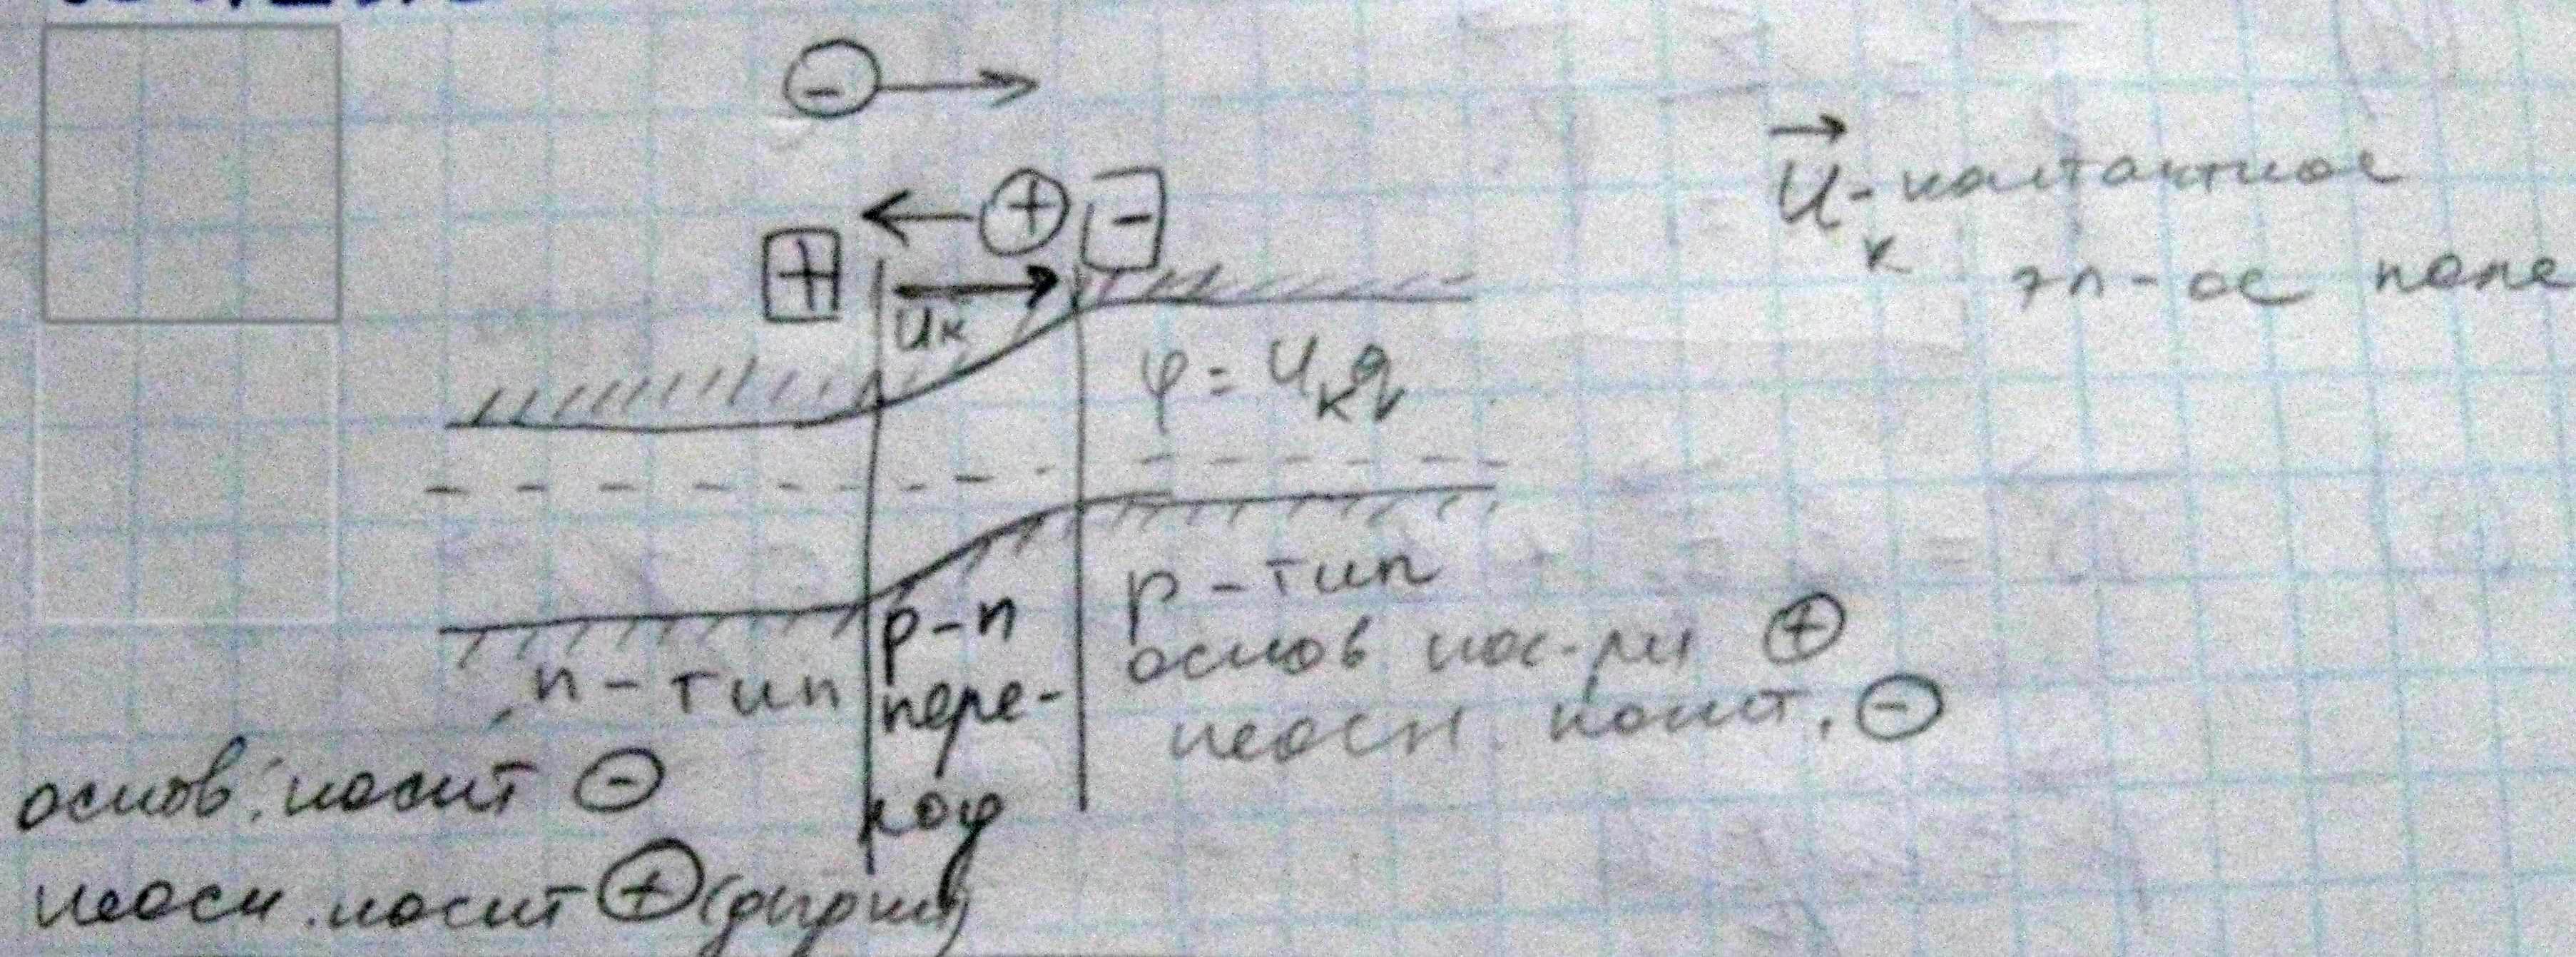 ⊖ →
← ⊕
⊞ ⊟
Uк
U⃗к - контактное
эл-ое поле
φ = Uкq
n - тип
p-n
пере-
ход
p - тип
основ нос-ли ⊕
неосн. носит. ⊖
основ. носит ⊖
неосн. носит ⊕ (дырки)